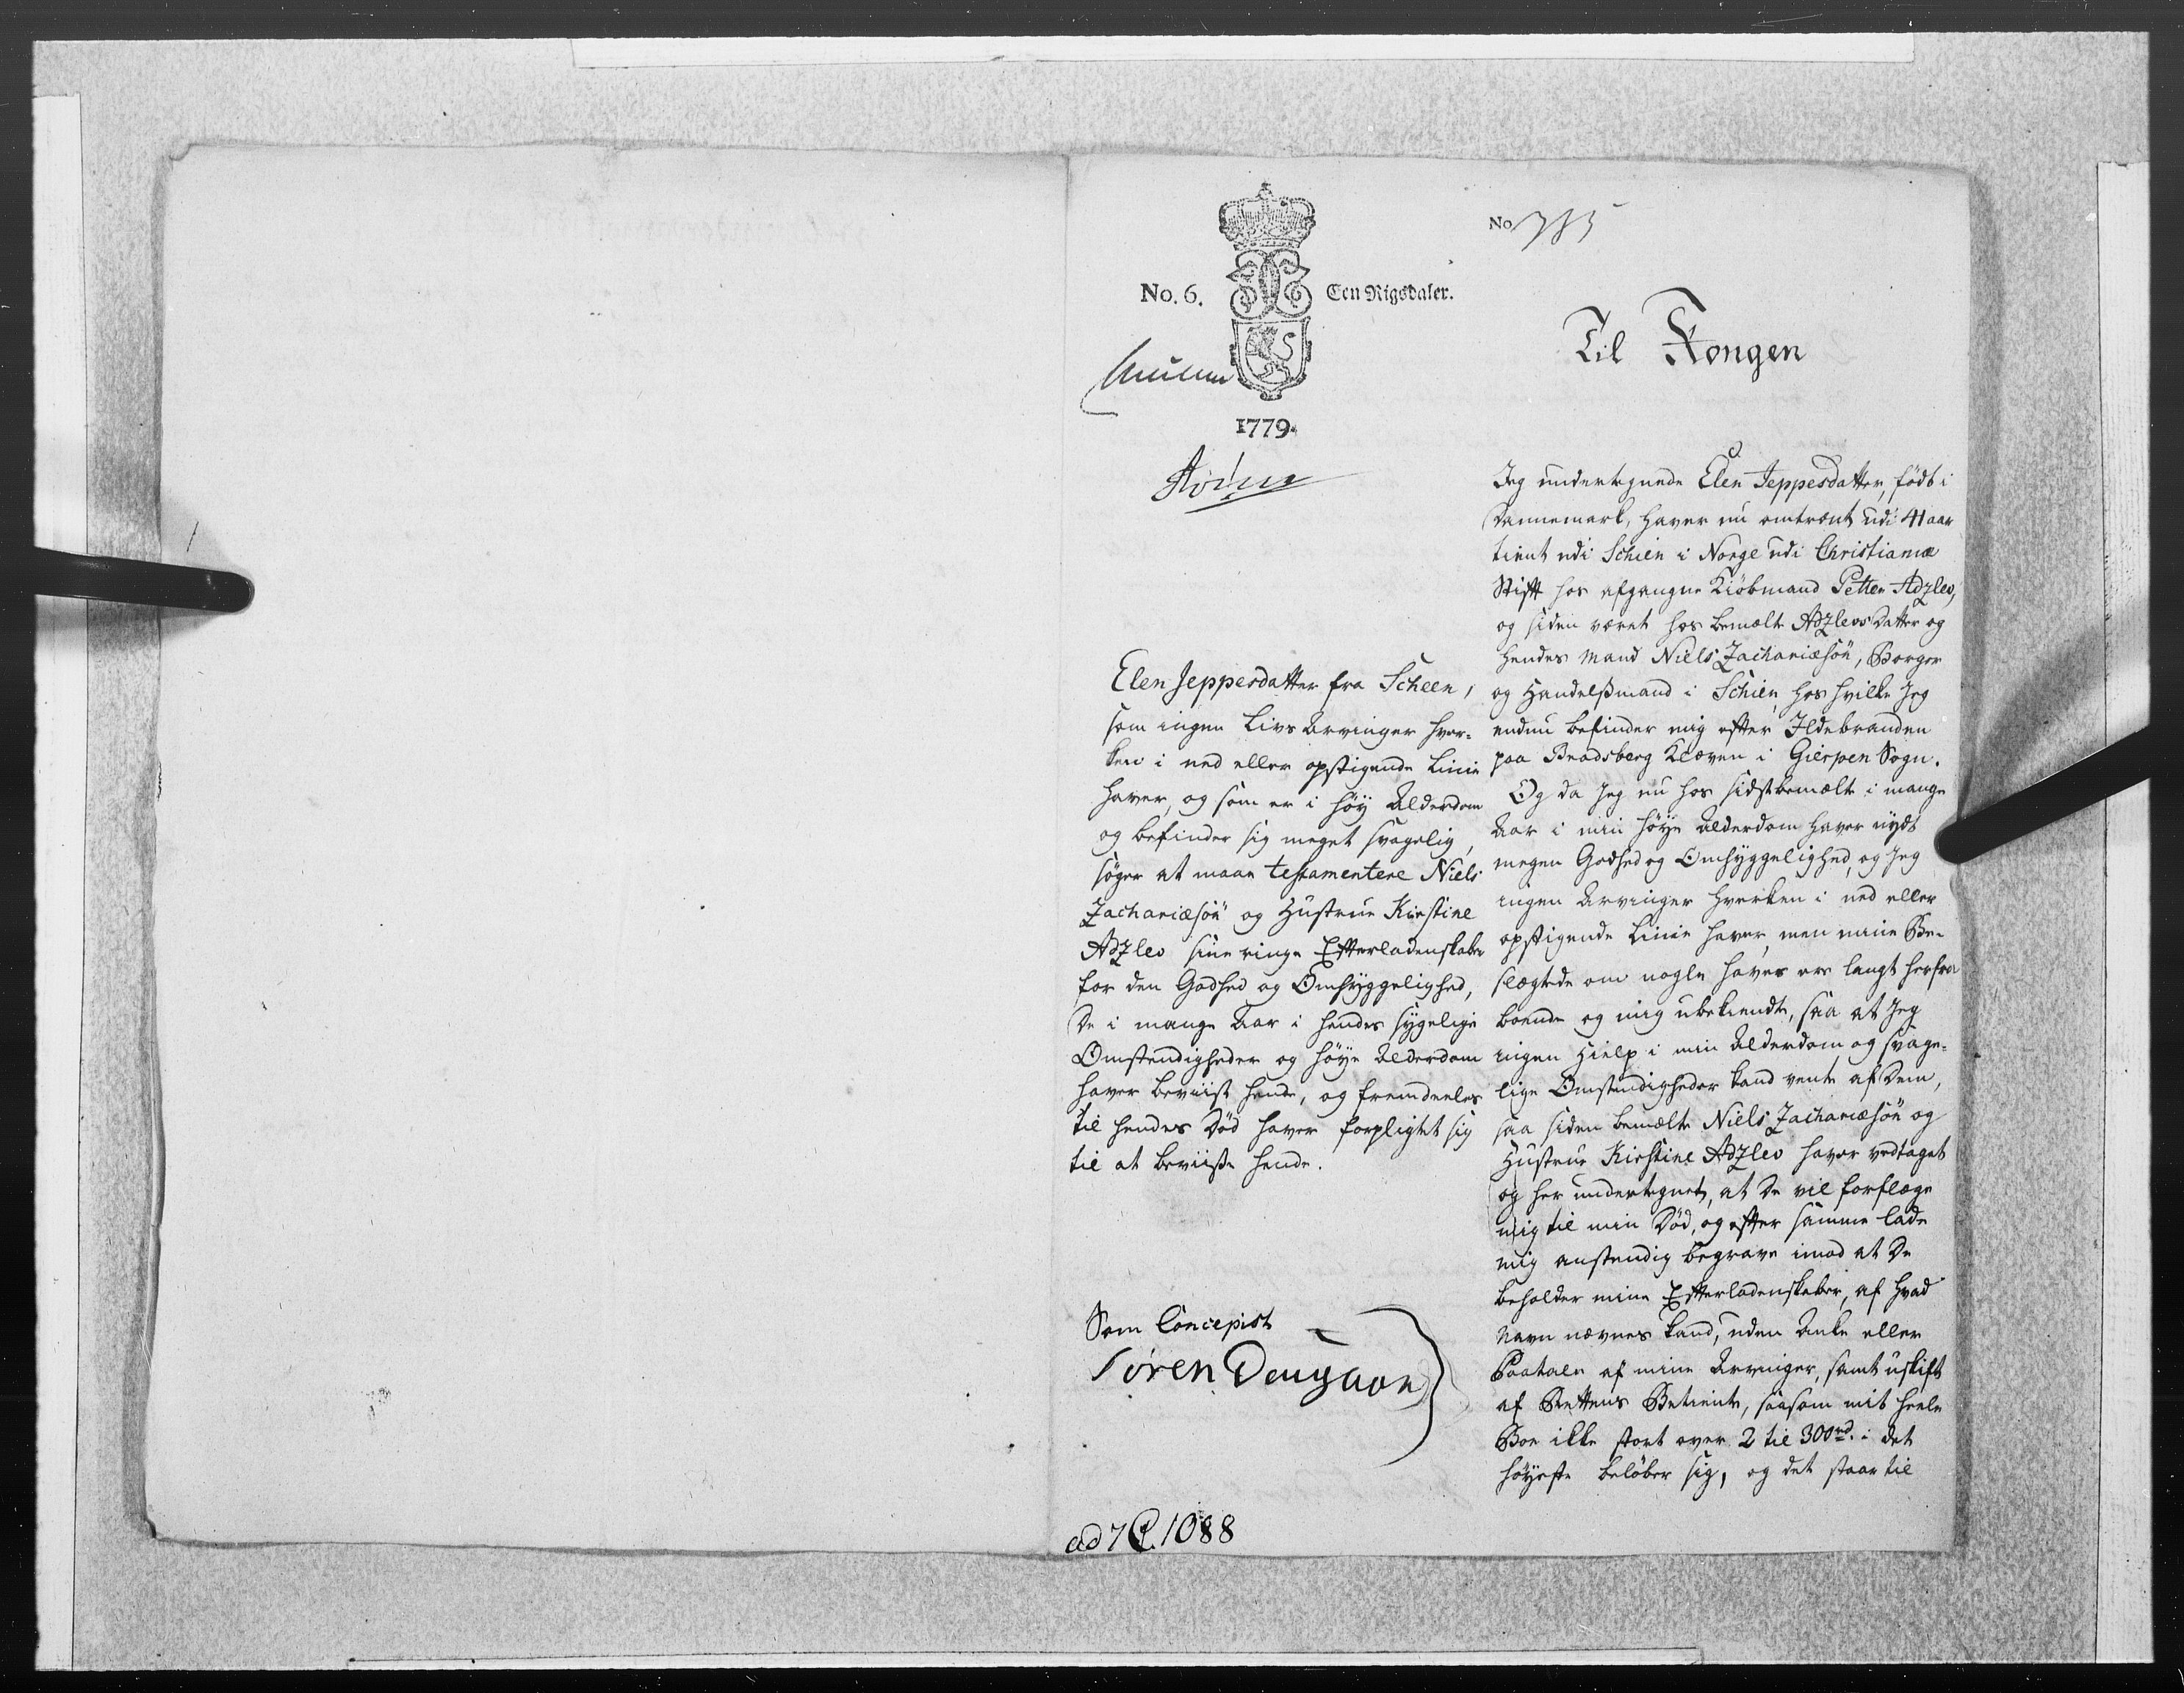 No. 6.
Een Rigsdaler.
1779.
Elen Jeppesdatter fra Scheen,
som ingen Livs Arvinger hver-
ken i ned eller opstigende Linie
haver, og som er i høy Alderdom
og befinder sig meget svagelig,
søger at maae testamentere Niels
Zachariæsøn og Hustrue Kirstine
Adzlev sine ringe Efterladenskaber
for den Godhed og Omhyggelighed,
De i mange Aar i hendes sygelige
Omstendigheder og høye Alderdom
haver beviist hende, og fremdeeles
til hendes Død haver forpligtet sig
til at beviise hende.
Som Concepist
Søren Daugaard
ad 7 1088
No 785
Til Kongen
Jeg undertegnede Elen Jeppesdatter, født i
Dannemark, haver nu omtrent udi 41 aar
tient udi Schien i Norge udi Christianiæ
Stift hos afgangne Kiøbmand Petter Adzlev,
og siden været hos bemælte Adzlevs Datter og
hendes Mand Niels Zachariæsøn, Borger
og Handelsmand i Schien, hos hvilke Jeg
endnu befinder mig efter Ildebranden
paa Bradsberg Kleven i Gierpen Sogn.
Og da Jeg nu hos sidstbemælte i mange
Aar i min høye Alderdom haver nydt
megen Godhed og Omhyggelighed, og Jeg
ingen Arvinger hverken i ned eller
opstigende Linie haver, men mine Be-
slægtede om nogle haves ere langt herfra
boende og mig ubekiendte, saa at Jeg
ingen Hielp i min Alderdom og svage-
lige Omstendigheder kand vente af Dem,
saa siden bemælte Niels Zachariæsøn og
Hustrue Kirstine Adzlev haver vedtaget
og her undertegnet, at De vil forflæge
mig til min Død, og efter samme lade
mig anstendig begrave imod at De
beholder mine Efterladenskaber, af hvad
Navn nævnes kand, uden Anke eller
Paatale af mine Arvinger, samt uskift
af Rettens Betiente, saasom mit heele
Boe ikke stort over 2 til 300 rd. i det
høyeste beløber sig, og det staar til